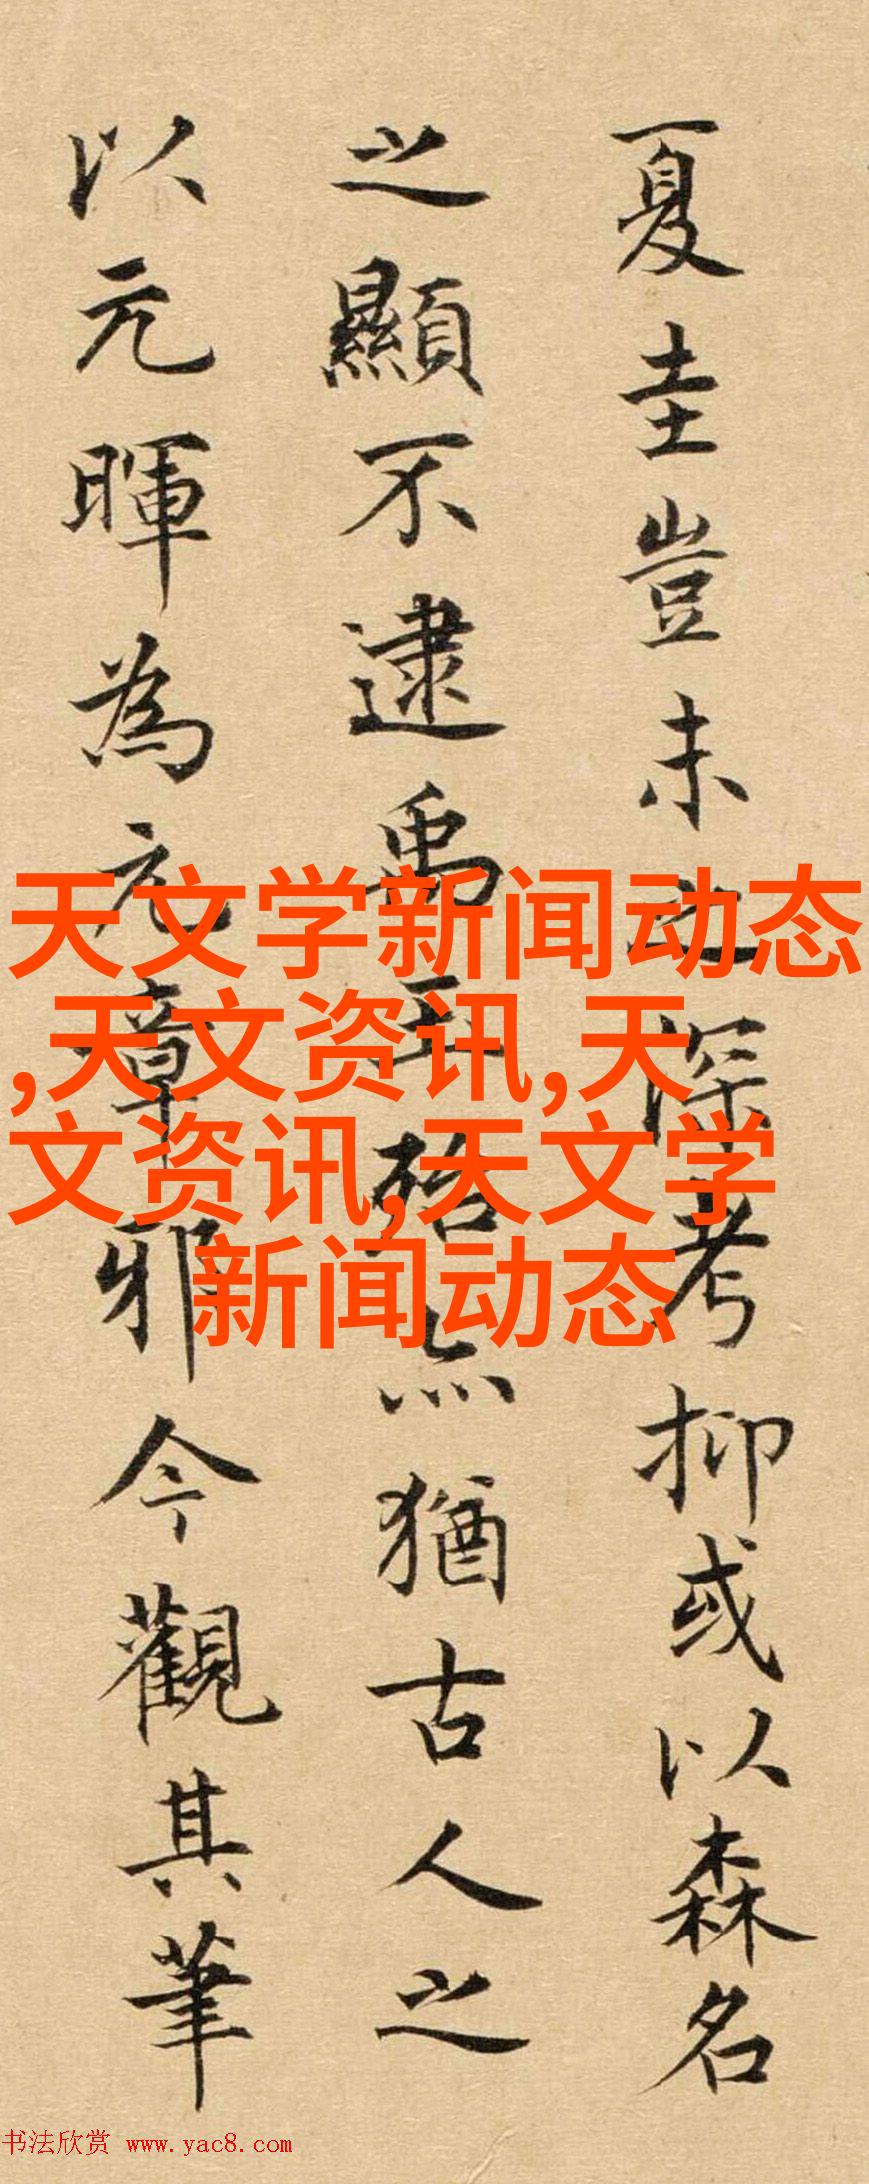 夏圭豈未之深考抑或以森名
之顯不逮禹玉㧞亦猶古人之
以元暉為元章邪今觀其筆
天文学新闻动态
,天文资讯,天
文资讯,天文学
新闻动态
书法欣赏 www.yac8.com